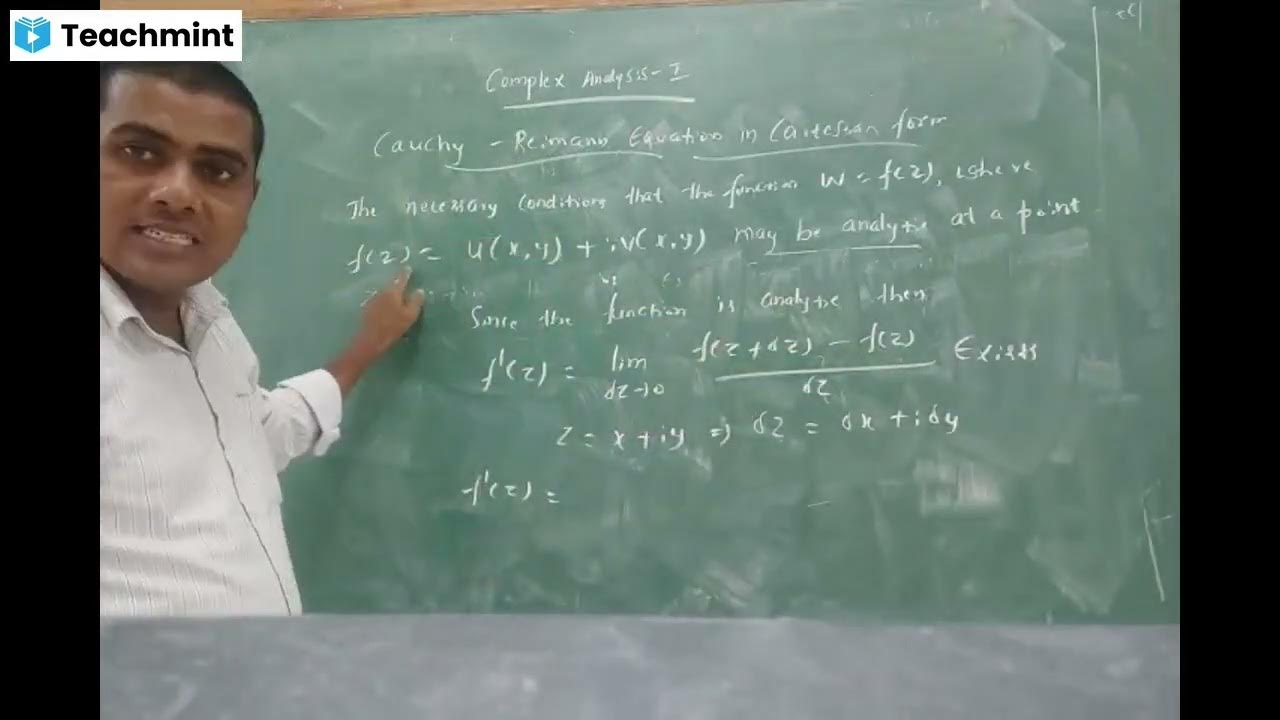 Teachmint
Complex Analysis-I
Cauchy - Reimann Equation in Cartesian form
The necessary conditions that the function W = f(z), where
f(z) = u(x,y) + iv(x,y) may be analytic at a point
Since the function is analytic then
f'(z) = lim δz→0 f(z+δz) - f(z) / δz Exists
z = x + iy ⇒ δz = δx + iδy
f'(z) =